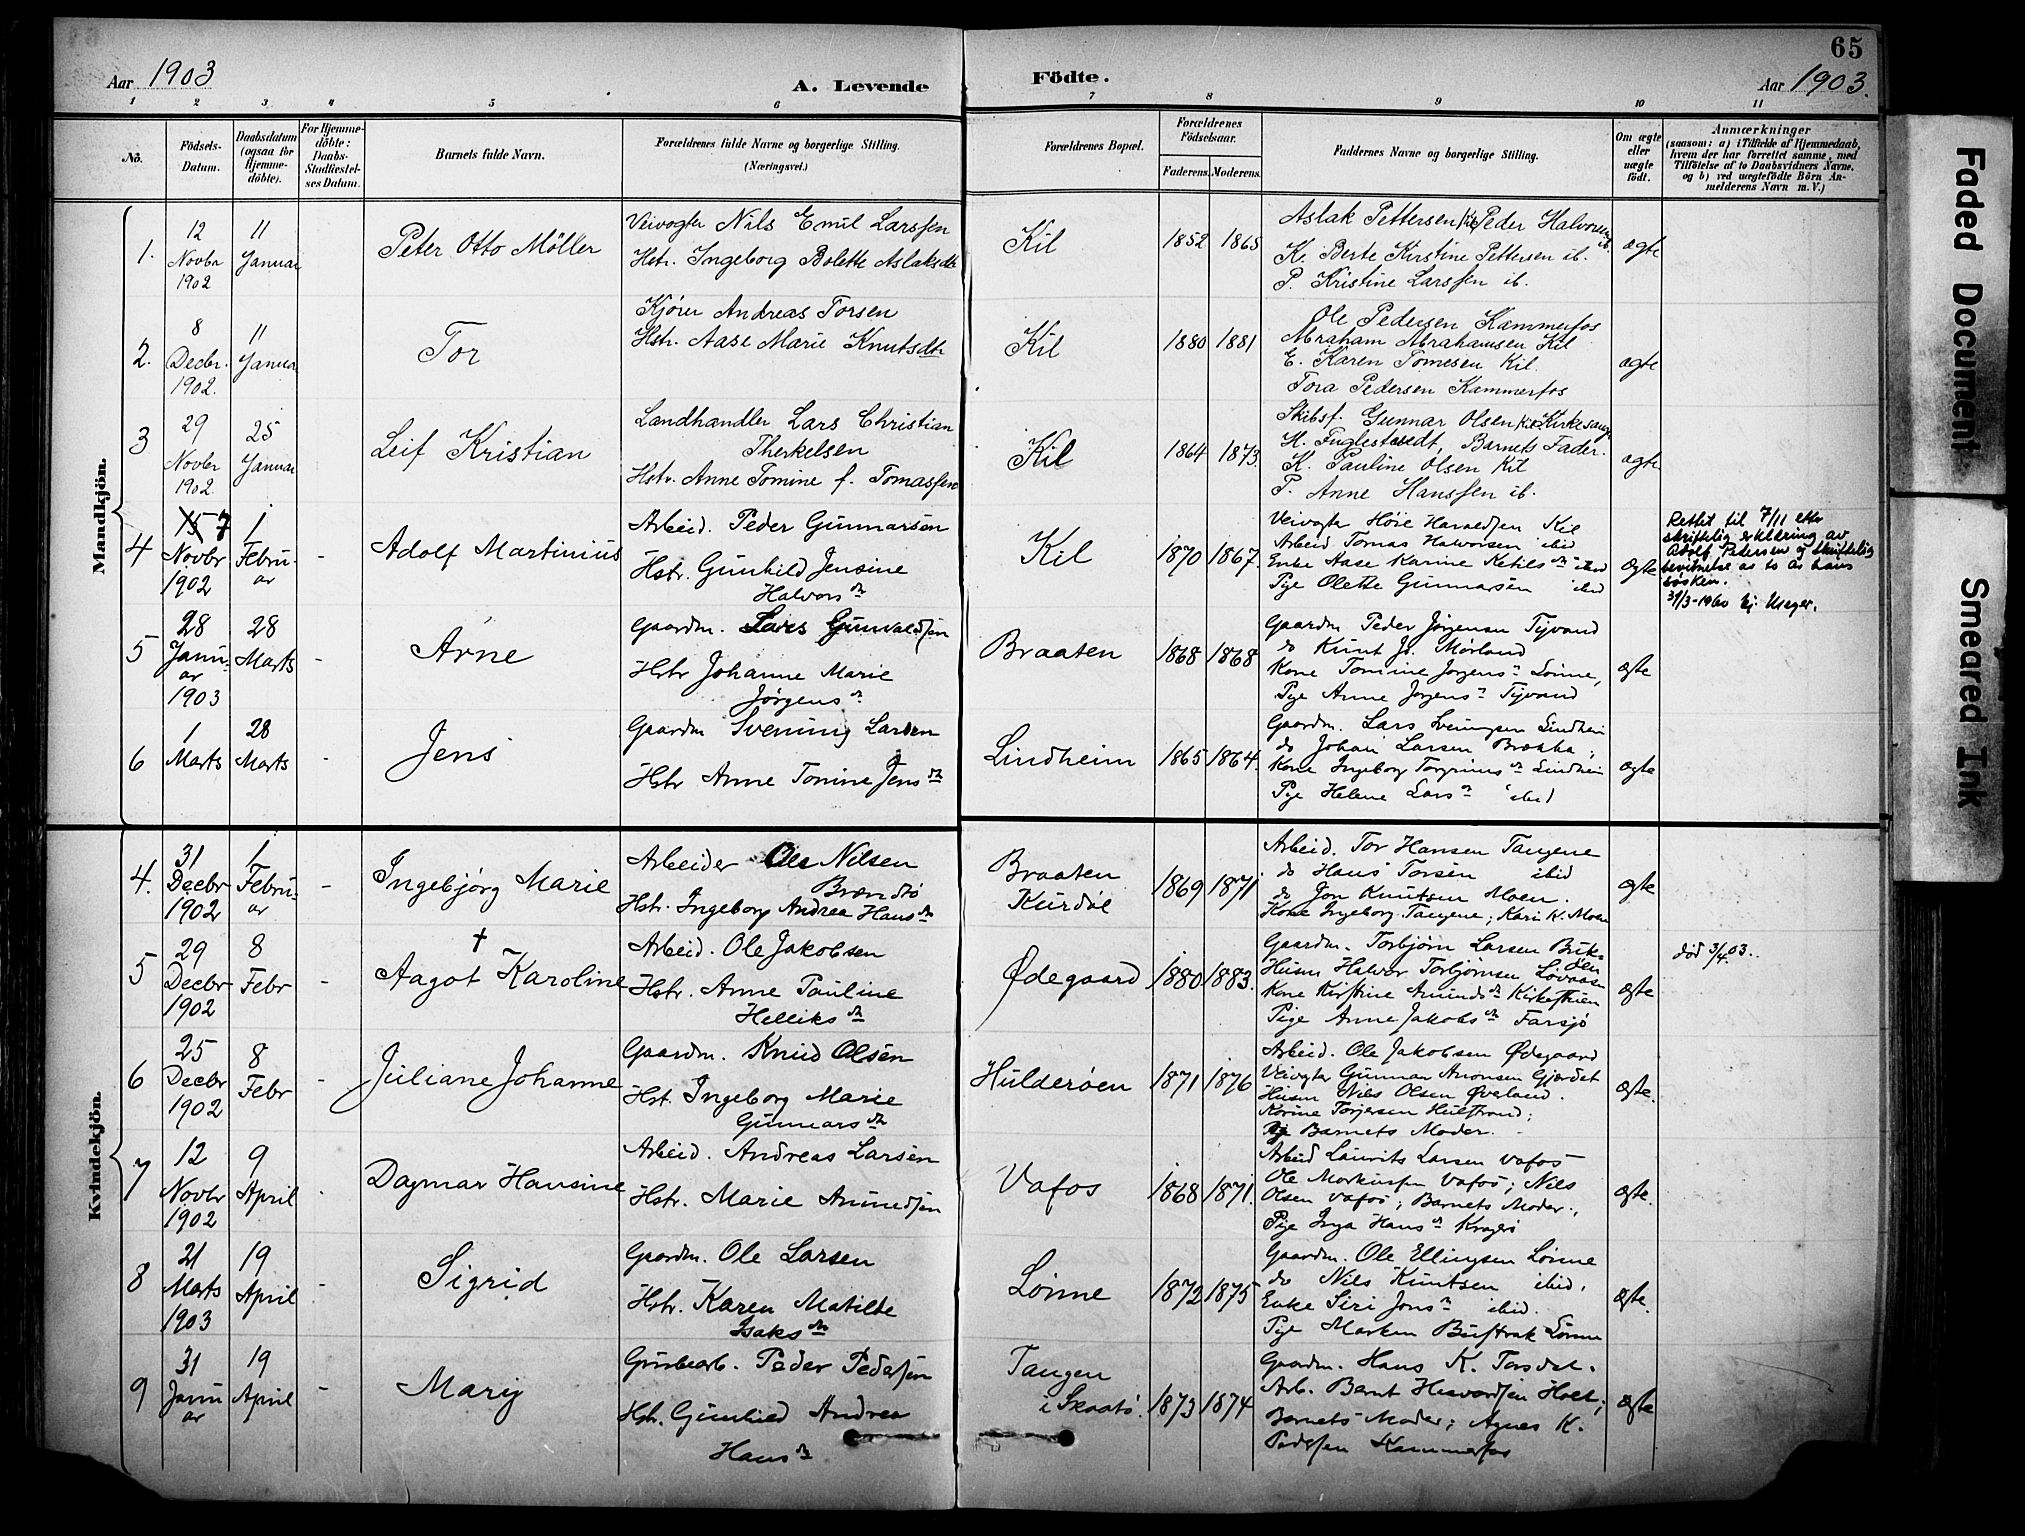 65
Aar 1903
A. Levende
Födte.
Aar 1903.
1 2 3 4 5 6 7 8 9 10 11
No.
Födsels-
Datum.
Daabsdatum
(ogsaa for
Hjemme-
döbte).
For Hjemme-
döbte:
Daabs-
Stadfæstel-
ses Datum.
Barnets fulde Navn.
Forældrenes fulde Navne og borgerlige Stilling.
(Næringsvei.)
Forældrenes Bopæl.
Forældrenes
Födselsaar.
Faderens. Moderens.
Faddernes Navne og borgerlige Stilling.
Om ægte
eller
uægte
födt.
Anmærkninger
(saasom: a) i Tilfælde af Hjemmedaab,
hvem der har forrettet samme, med
Tilföielse af to Daabsvidners Navne,
og b) ved uægtefödte Börn An-
melderens Navn m. V.)
Mandkjön.
1.
12
Novbr
1902
11
Januar
Peter Otto Möller
Veivogter Nils Emil Larssen
Hstr. Ingeborg Bolette Aslaksdtr
Kil
1852 1865
Aslak Pettersen Kil Peder Halvorsen ib.
K. Berte Kirstine Pettersen ib.
P. Kristine Larssen ib.
ægte
2.
8
Decbr.
1902.
11
Januar
Tor
Kjører Andreas Torsen
Hstr. Aase Marie Knutsdtr
Kil
1880 1881
Ole Pedersen Kammerfos
Abraham Abrahamsen Kil
E. Karen Tomesen Kil.
Tora Pedersen Kammerfos
ægte
3
29
Novbr
1902.
25
Januar
Leif Kristian
Landhandler Lars Christian
Therkelsen
Hstr. Anne Tomine f. Tomassen
Kil
1864 1873.
Skibsf. Gunnar Olsen Kil Kirkesang.
H. Fuglestvedt, Barnets Fader.
K. Pauline Olsen Kil
P. Anne Hanssen ib.
ægte
4
15 7
Novbr
1902
1
Febru-
ar
-
Adolf Martinius
Arbeid. Peder Gunnarsen
Hstr. Gunhild Jensine
Halvorsdtr
Kil
1870 1867.
Veivogter Höie Haraldsen Kil
Arbeid Tomas Halvorsen ibid
Enke Aase Karine Ketilsdtr ibid
Pige Olette Gunnarsen ibid
ægte
Rettet til 7/11 etter
skriftelig erklæring av
Adolf Petersen og skriftelig
bevitnelse as to av hans
søsken.
31/3-1960
5
28
Janu-
ar
1903
28
Marts
-
Arne
Gaardm. Lars Gunvaldsen
Hstr Johanne Marie
Jørgensdtr
Braaten
1868 1868
Gaardm Peder Jørgensen Tyvand
do Knut Jo. Mørland
Kone Tomine Jorgensdtr Lønne,
Pige Anne Jorgensdtr Tyvand
ægte
6
1
Marts
28
Marts
-
Jens
Gaardm Svenung Larsen
Hstr Anne Tomine Jensdtr
Lindheim
1865 1864.
Gaardm. Lars Svenungsen Lindheim
do Johan Larsen Brækka;
Kone Ingeborg Torgrimsdtr Lindheim
Pige Helene Larsdtr ibid
ægte
Kvindekjön.
4.
31
Decbr
1902
1
Febru-
ar
-
Ingebjørg Marie
Arbeider Ole Nilsen
Brændø
Hstr. Ingeborg Andrea Hansdtr
Braaten
Kurdöl
1869 1871.
Arbeid. Tor Hansen Tangene
do Hans Torsen ibid
do Jon Knutsen Moen.
Kone Ingeborg Tangene; Kari K. Moen
ægte
5
29
Decbr
1902
8
Febr
-
†
Aagot Karoline
Arbeid. Ole Jakobsen
Hstr. Anne Pauline
Helliksdtr
Ødegaard
1880 1883.
Gaardm. Torbjørn Larsen
Husm Halvor Torbjørnsen Lövaasen
Kone Kirstine Amundsdtr
Pige Anne Jakobsdtr Farsjø
ægte
död 3/4 03.
6
25
Decbr
1902
8
Febr
-
Juliane Johanne
Gaardm. Knud Olsen
Hst. Ingeborg Marie
Gunnarsdtr
Hulderöen
1871 1876
Arbeid. Ole Jakobsen Ødegaard
Veivogter Gunnar Aronsen Gjerdet
Husm Nils Olsen Øveland.
Karine Torjersen Hulstrand;
Barnets Moder.
ægte.
7
12
Novbr
1902
9
April
-
Dagmar Hansine
Arbeid. Andreas Larsen
Hstr. Marie Amundsen
Vafos
1868 1871.
Arbeid Laurits Larsen Vafos
Ole Markussen Vafos; Nils
Olsen Vafos; Barnets Moder.,
Pige Inga Hansdtr Kragerö
ægte.
8
21
Marts
1903
19
April
-
Sigrid
Gaardm. Ole Larsen
Hstr. Karen Matilde
Isaksdtr
Lönne
1872 1875
Gaardm. Ole Ellingsen Lönne
do Nils Knutsen ibid,
Enke Siri Jonsdtr ibid.
Pige Marken Lönne
ægte.
9
31
Janu
ar
19
April
-
Mary
Grubearb. Peder Pedersen
Hstr. Gunhild Andrea
Hansdtr
Tangen
i Skaatö.
1873 1874
Gaardm. Hans K. Torsdal.
Arb. Bernt Holt;
Barnets Moder; Agnes K.
Pedersen Kammerfos
ægte
Faded Document
Smeared Ink